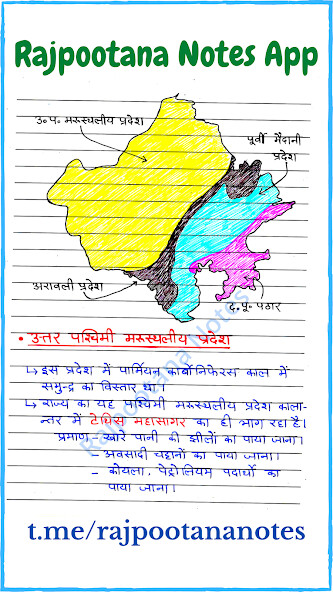 Rajpootana Notes App
उ॰ प॰ मरूस्थलीय प्रदेश
पूर्वी मैदानी
प्रदेश
अरावली प्रदेश
द॰ पू॰ पठार
• उत्तर पश्चिमी मरूस्थलीय प्रदेश
↳ इस प्रदेश में पार्मियन कार्बोनिफेरस काल में
समुन्द्र का विस्तार था।
↳ राज्य का यह पश्चिमी मरूस्थलीय प्रदेश काला-
न्तर में टेथिस महासागर का ही भाग रहा है।
प्रमाण - खारे पानी की झीलों का पाया जाना।
- अवसादी चट्टानों का पाया जाना।
- कोयला, पेट्रोलियम पदार्थो का
पाया जाना।
Rajpootana Notes
t.me/rajpootananotes